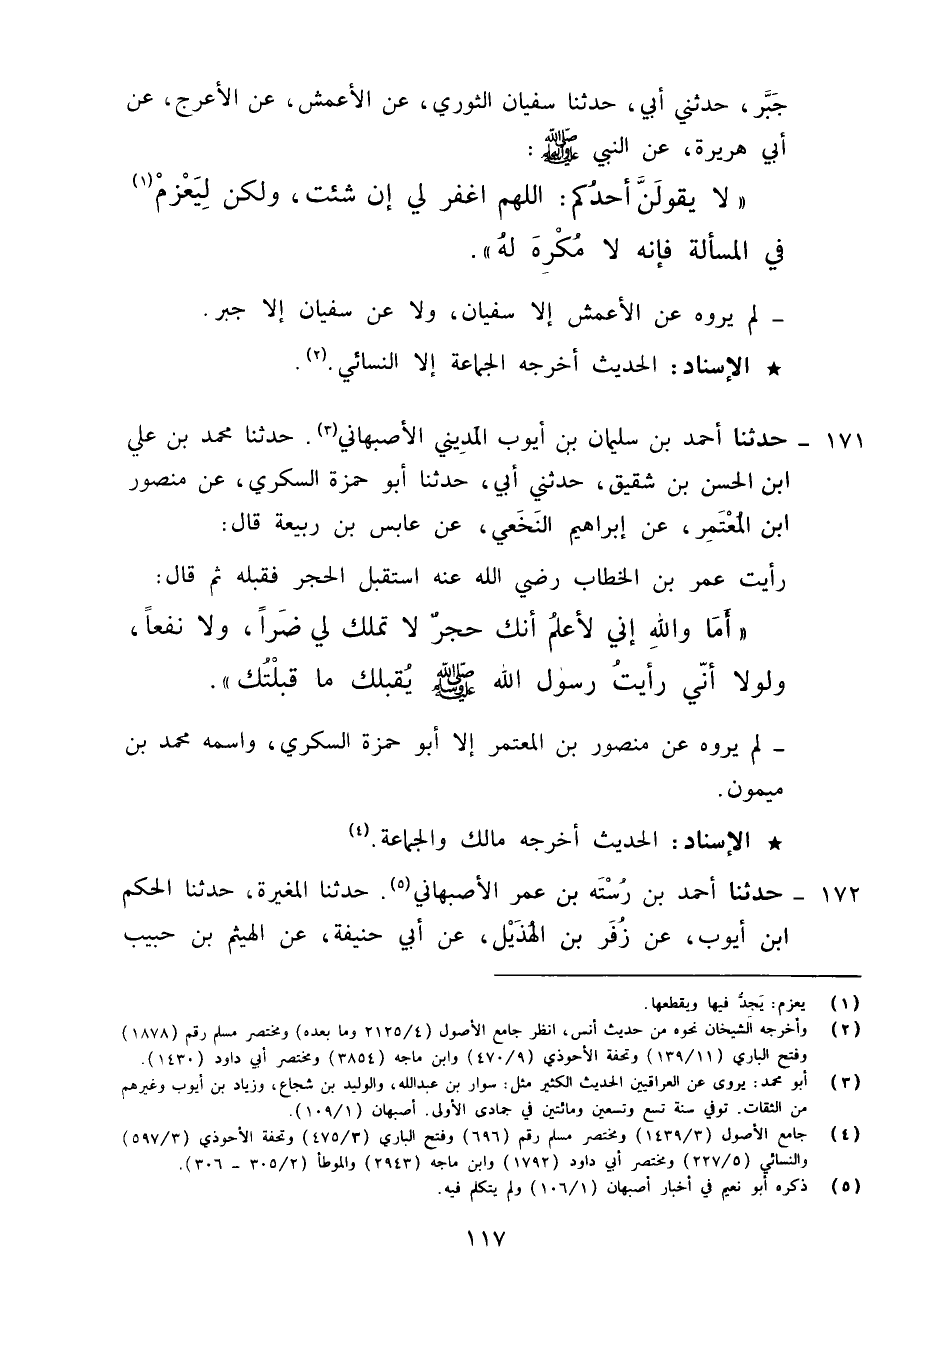 جَبَّر، حدثني أبي، حدثنا سفيان الثوري، عن الأعمش، عن الأعرج، عن
أبي هريرة، عن النبي ﷺ :
« لا يقولَنَّ أحدُكم: اللهم اغفر لي إن شئت، ولكن لِيَعْزِمْ(١)
في المسألة فإنه لا مُكْرِهَ لهُ».
ـ لم يروه عن الأعمش إلا سفيان، ولا عن سفيان إلا جبر.
★ الإسناد: الحديث أخرجه الجماعة إلا النسائي.(٢).
١٧١ ـ حدثنا أحمد بن سليمان بن أيوب المديني الأصبهاني(٣). حدثنا محمد بن علي
ابن الحسن بن شقيق، حدثني أبي، حدثنا أبو حمزة السكري، عن منصور
ابن المُعْتَمِر، عن إبراهيم النَخَعي، عن عابس بن ربيعة قال:
رأيت عمر بن الخطاب رضي الله عنه استقبل الحجر فقبله ثم قال:
« أَمَا واللهِ إني لأعلمُ أنك حجرٌ لا تملك لي ضَراً، ولا نفعاً،
ولولا أنّي رأيتُ رسول الله ﷺ يُقبلك ما قبلْتُك».
ـ لم يروه عن منصور بن المعتمر إلا أبو حمزة السكري، واسمه محمد بن
ميمون.
★ الإسناد: الحديث أخرجه مالك والجماعة.(٤)
١٧٢ ـ حدثنا أحمد بن رُسْتَه بن عمر الأصبهاني(٥). حدثنا المغيرة، حدثنا الحكم
ابن أيوب، عن زُفَر بن الهُذَيْل، عن أبي حنيفة، عن الهيثم بن حبيب
(١) يعزم: يَجِدُّ فيها ويقطعها.
(٢) وأخرجه الشيخان نحوه من حديث أنس، انظر جامع الأصول (٢١٢٥/٤ وما بعده) ومختصر مسلم رقم (١٨٧٨)
وفتح الباري (١٣٩/١١) وتحفة الأحوذي (٤٧٠/٩) وابن ماجه (٣٨٥٤) ومختصر أبي داود (١٤٣٠).
(٣) أبو محمد: يروى عن العراقيين الحديث الكثير مثل: سوار بن عبدالله، والوليد بن شجاع، وزياد بن أيوب وغيرهم
من الثقات. توفي سنة تسع وتسعين ومائتين في جمادى الأولى. أصبهان (١٠٩/١).
(٤) جامع الأصول (١٤٣٩/٣) ومختصر مسلم رقم (٦٩٦) وفتح الباري (٤٧٥/٣) وتحفة الأحوذي (٥٩٧/٣)
والنسائي (٢٢٧/٥) ومختصر أبي داود (١٧٩٢) وابن ماجه (٢٩٤٣) والموطأ (٣٠٥/٢ ـ ٣٠٦).
(٥) ذكره أبو نعيم في أخبار أصبهان (١٠٦/١) ولم يتكلم فيه.
١١٧